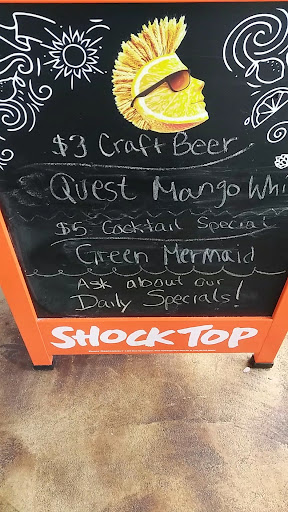 $3 Craft Beer
Quest Mango Whi
$5 Cocktail Special
Green Mermaid
Ask about our
Daily Specials!
SHOCK TOP